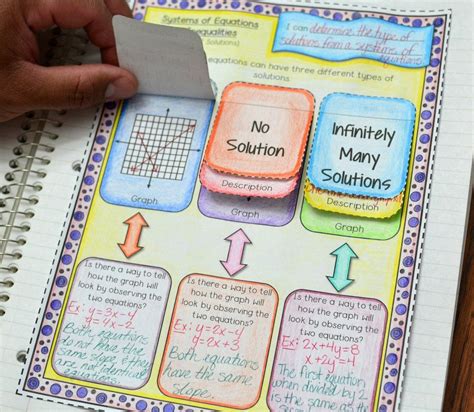 Systems of Equations
equalities
Solutions)
I can determine the type of
solutions from a systems of
equations
equations can have three different types of
solutions.
No
Solution
Description
Graph
Infinitely
Many
Solutions
Description
Graph
Graph
Is there a way to tell
how the graph will
look by observing the
two equations?
Ex: y=3x-4
y=4x-2
Both equations
to not have the
same slope they
are not identical
Is there a way to tell
how the graph will
look by observing the
two equations?
Ex: y=2x-4
y=2x+3
Both equations
have the same
slope.
Is there a way to tell
how the graph will
look by observing the
two equations?
Ex: 2x+4y=8
x+2y=4
The first equation
when divided by 2
is the same